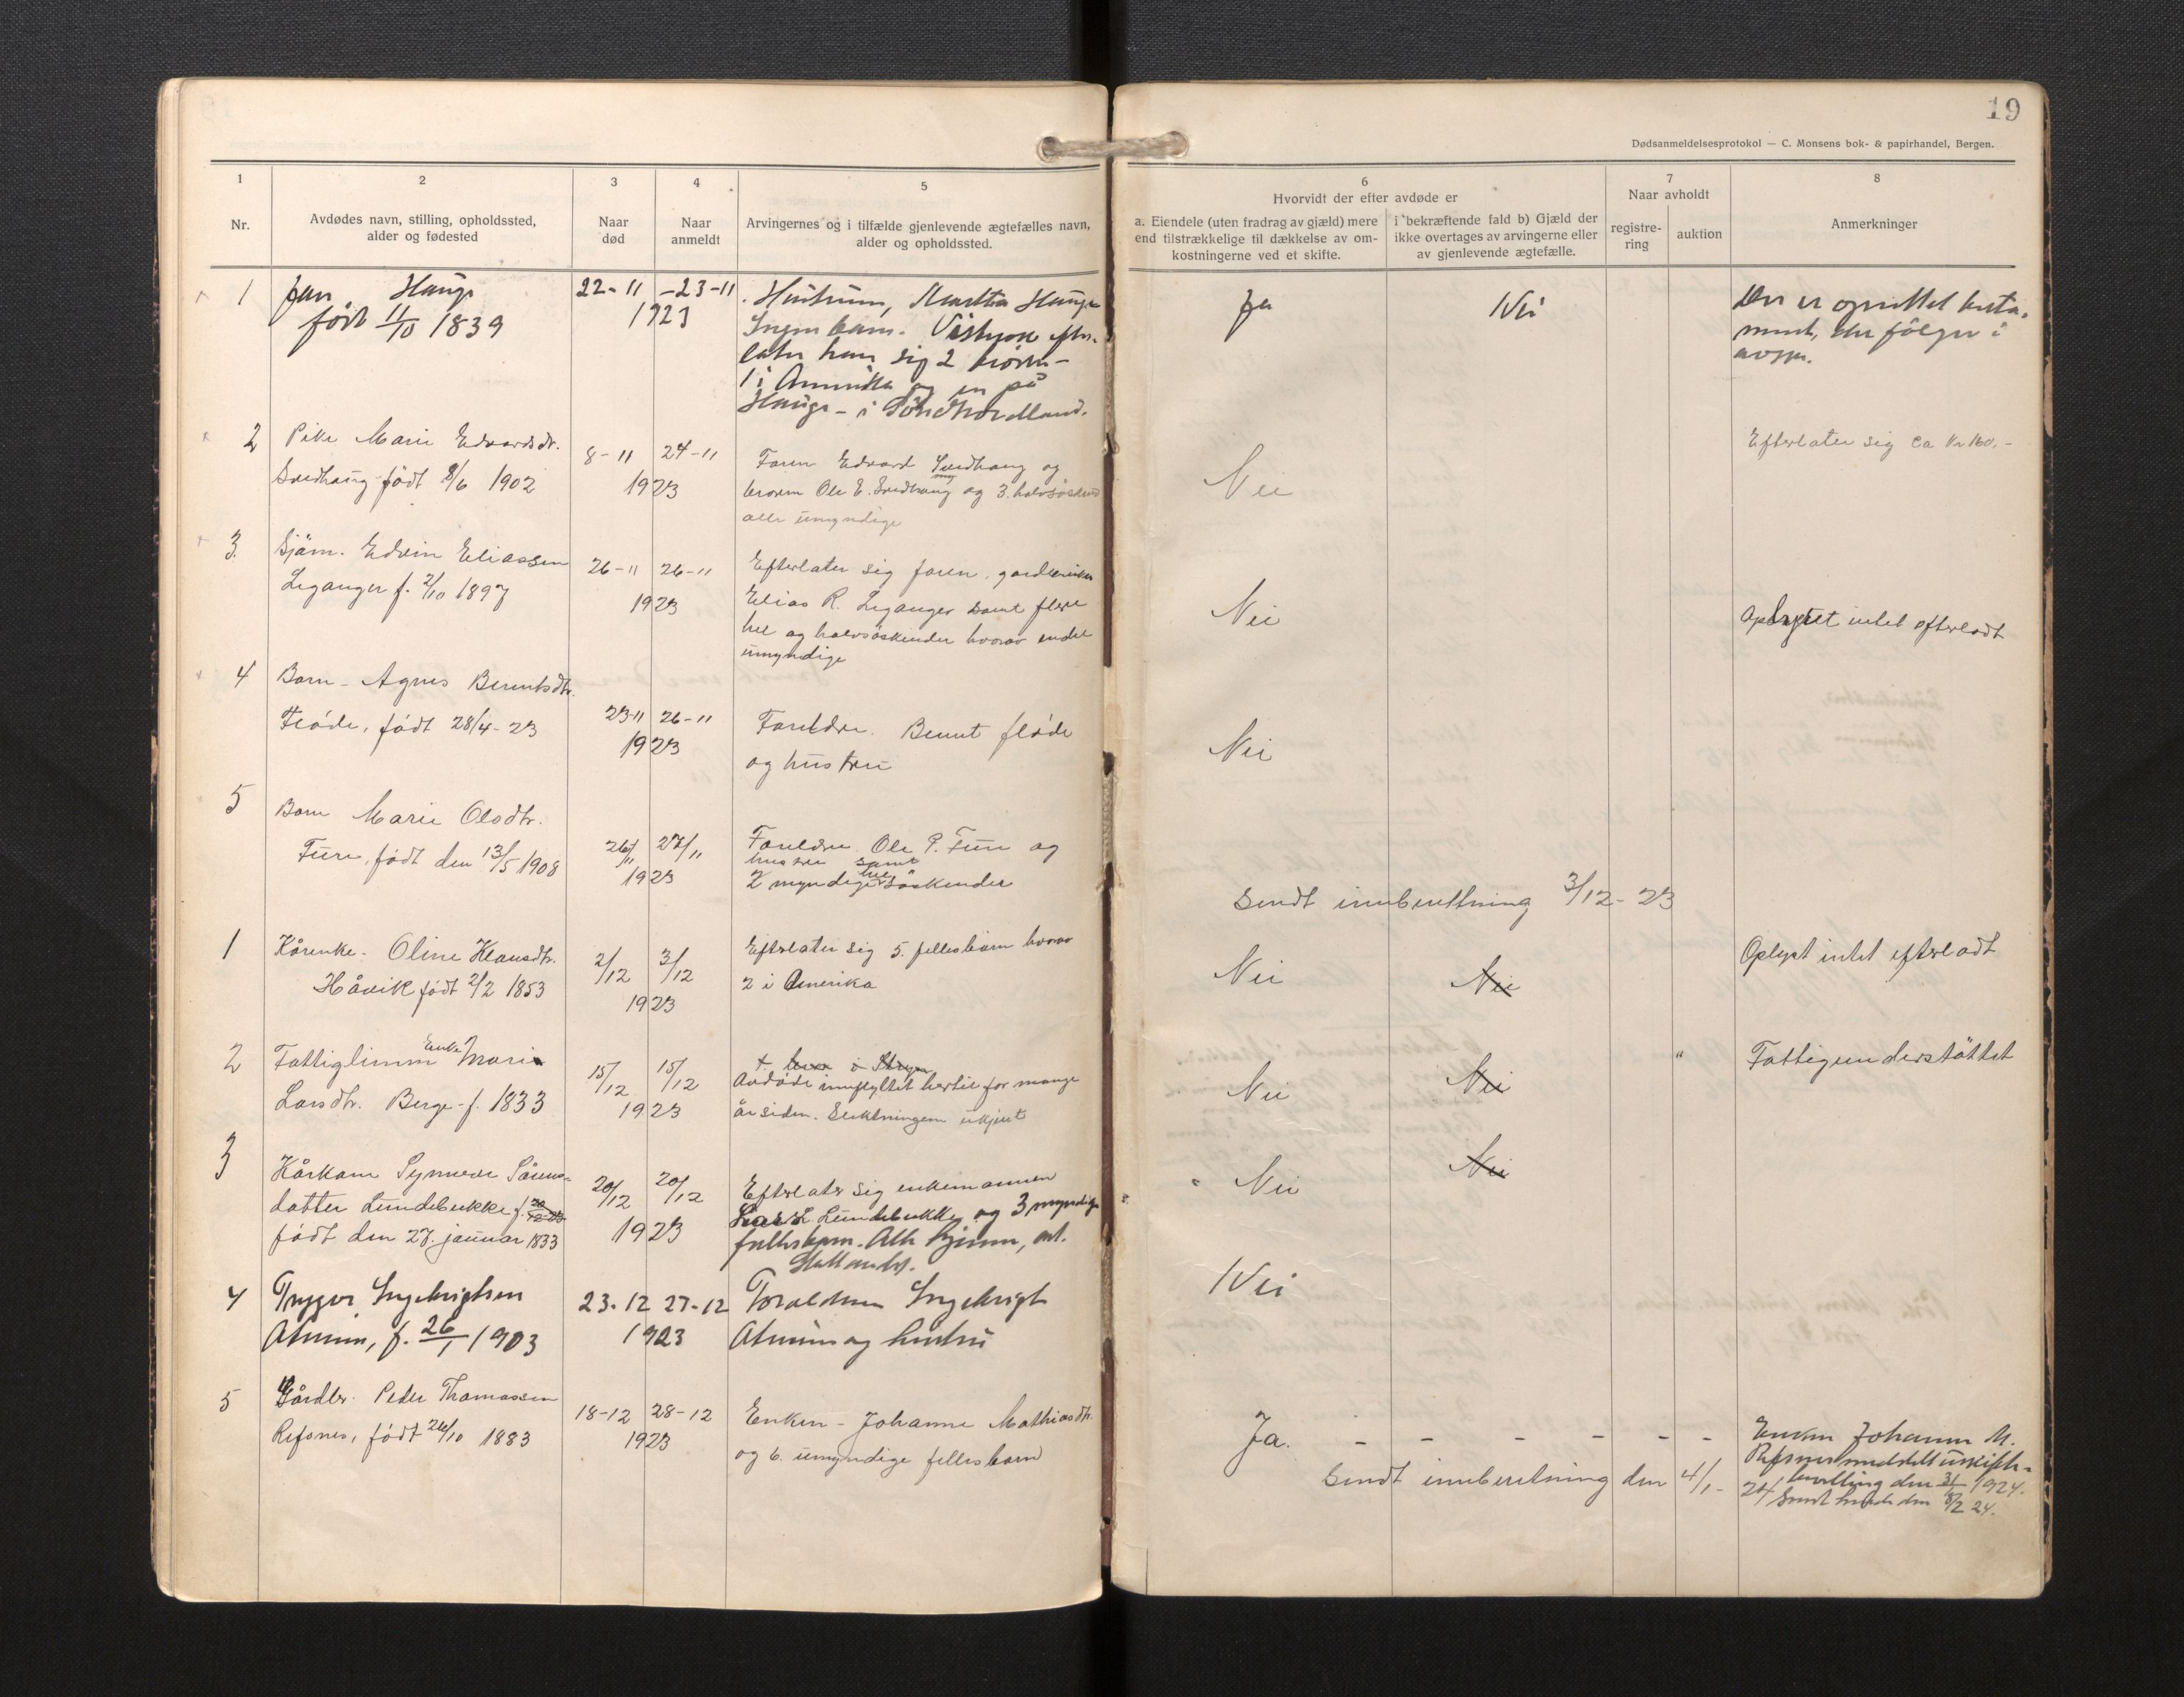 19
Dødsanmeldelsesprotokol — C. Monsens bok- & papirhandel, Bergen.
1
Nr.
2
Avdødes navn, stilling, opholdssted,
alder og fødested
3
Naar
død
4
Naar
anmeldt
5
Arvingernes og i tilfælde gjenlevende ægtefælles navn,
alder og opholdssted.
6
Hvorvidt der efter avdøde er
a. Eiendele (uten fradrag av gjæld) mere
end tilstrækkelige til dækkelse av om-
kostningerne ved et skifte.
i bekræftende fald b) Gjæld der
ikke overtages av arvingerne eller
av gjenlevende ægtefælle.
7
Naar avholdt
registre-
ring
auktion
8
Anmerkninger
1
Jan Hauge
født 11/10 1839
22-11 -23-11
1923
Hustruen, Martha Hauge
Ingen barn. Vistnok efter-
later han sig 2 brødre -
1 i Amerika og en på
Hauge - i Söndhordland.
Ja
Nei
Der er oprettet testa-
ment, der følger i
avskr.
2
Pike Marie Edvardsdtr.
Svedhaug født 8/6 1902
8-11 24-11
1923
Faren Edvard Svedhaug og
broren Ole E. Svedhaug og 3. halvsöskend
alle umyndige
Nei
Efterlater sig ca Kr 160.-
3.
Sjöm. Edvin Eliassen
Leganger f. 2/10 1897
26-11 26-11
1923
Efterlater sig faren, gardbruker
Elias R. Leganger samt flere
hel og halvsöskender hvorav endel
umyndige
Nei
Oplyst intet efterladt
4
Barn - Agnes Berentsdtr.
Flöde, född 28/4-23
23-11 26-11
1923
Foreldre. Bernt Flöde
og hustru
Nei
5
Barn Marie Olsdtr.
Fure, født den 13/5 1908
26/11 27/11
1923
Foreldre Ole P. Fure og
hustru samt
2 myndige hel söskender
Sendt innberettning 3/12-23
1
Kårenke - Oline Hansdtr.
Håvik født 2/2 1853
2/12 3/12
1923
Efterlater sig 5. fellesbarn hvorav
2 i Amerika
Nei
Nei
Oplyst intet efterladt
2
Fattiglemm Enke Marie
Larsdtr. Berge - f. 1833
15/12 15/12
1923
Avdöde innflyttet hertil for mange
år siden. Slektningene ukjent
Nei
Nei
"
Fattigunderstöttet
3
Kårkone Synneve Sörens-
datter Lundebukke f. 20/12-23
født den 27. januar 1833
20/12 20/12
1923
Efterlater sig enkemannen
Lars L. Lundebukke og 3 myndige
fellesbarn. Alle hjemme, ad.
Nei
Nei
4
Trygve Ingebrigtsen
Årneim, f. 26/1 1903
23-12 27-12
1923
Foreldrene Ingebrigt
Årneim og hustru
Nei
5
Gårdbr. Peder Thomassen
Refsnes, født 24/10 1883
18-12 28-12
1923
Enken - Johanne Mathiasdtr.
og 6. umyndige fellesbarn
Ja. - - - - - -
Sendt innberetning den 4/1-24
Enken Johanne M.
Refsnes meddelt uskifte-
bevilling den 31/1 1924.
Sendt hende den 8/2 24.